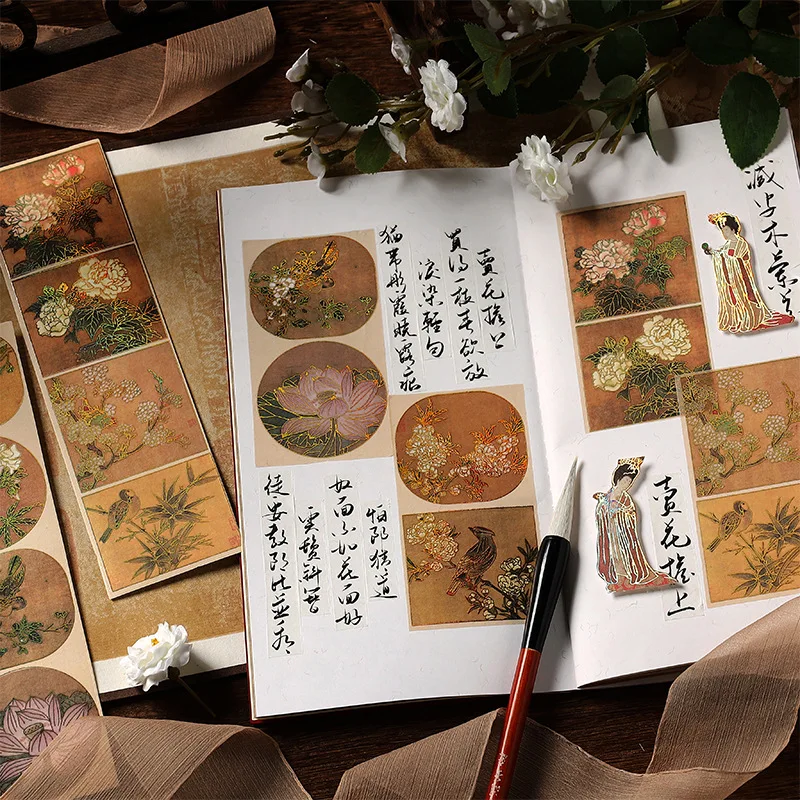 減字木蘭
賣花擔上
賣花擔上
買得一枝春欲放
淚染輕勻
猶帶彤霞曉露痕
怕郎猜道
奴面不如花面好
雲鬢斜簪
徒要教郎比並看